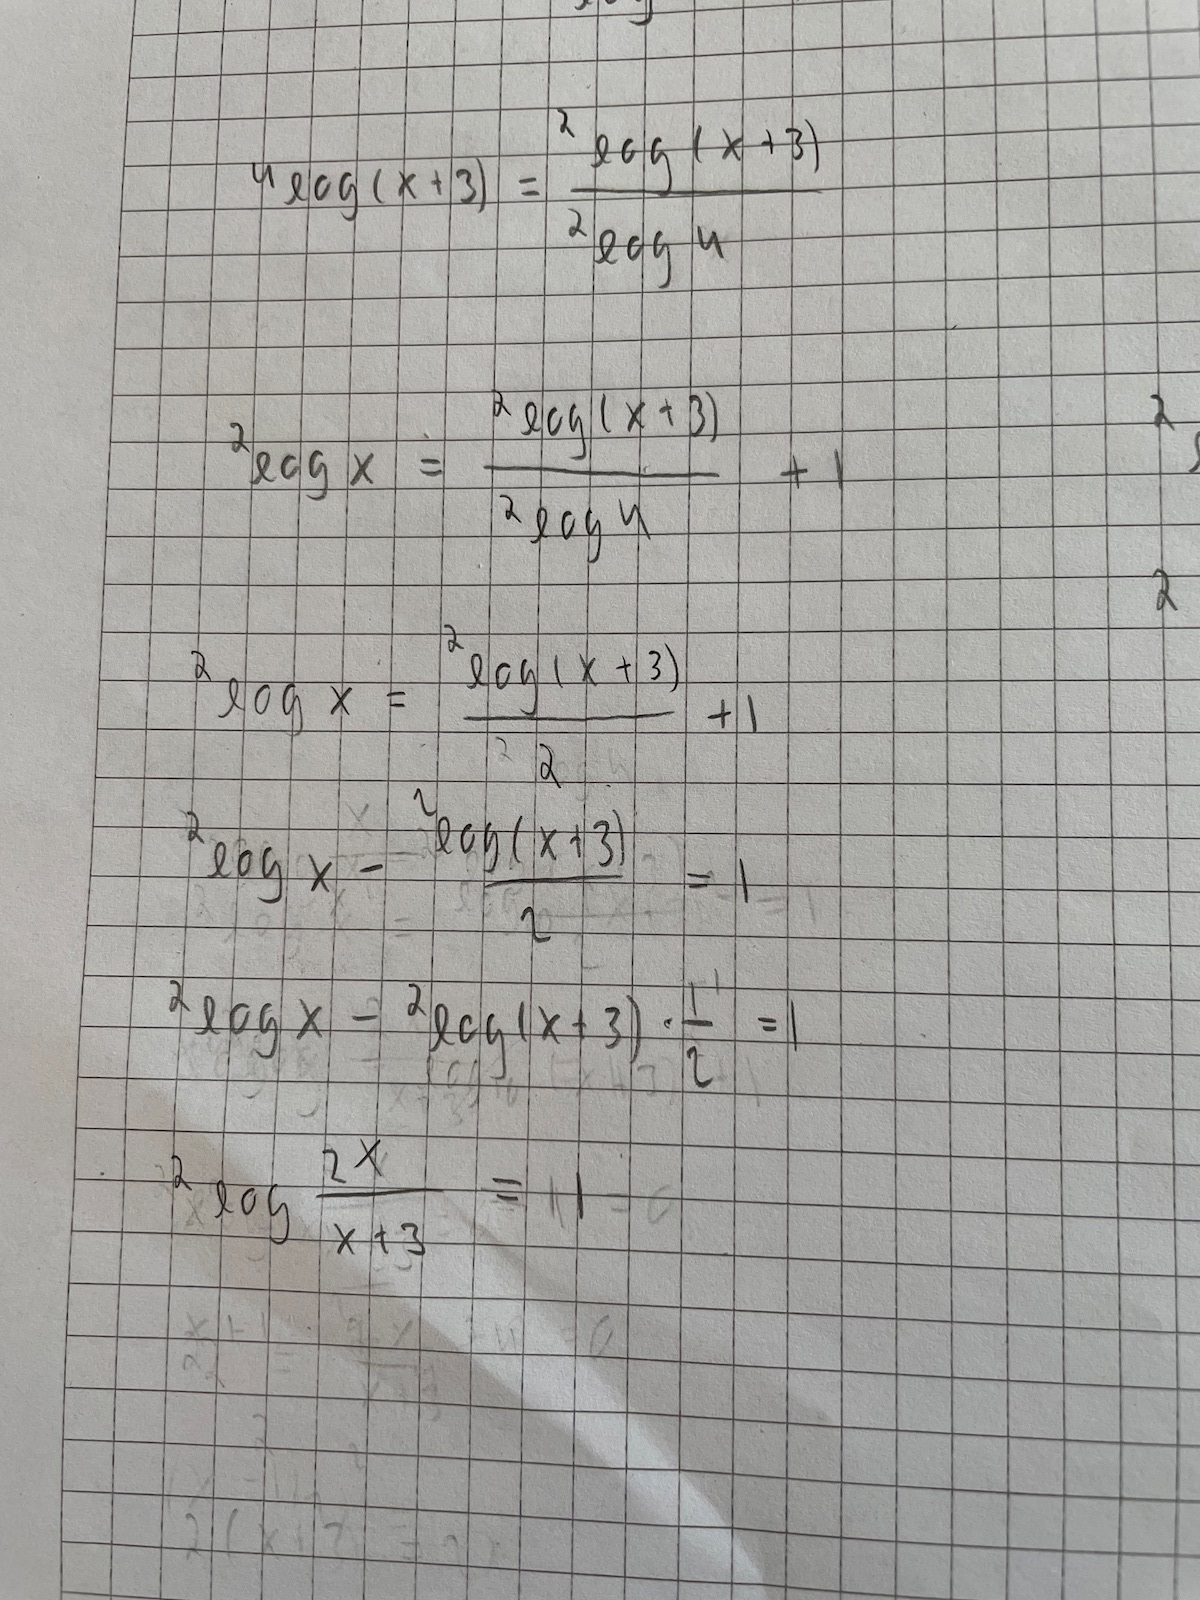 ⁴log(x+3) = ²log(x+3) / ²log 4
²log x = ²log(x+3) / ²log 4 + 1
²log x = ²log(x+3) / 2 + 1
²log x - ²log(x+3) / 2 = 1
²log x - ²log(x+3) · 1/2 = 1
²log 2x / x+3 = 1
2
2